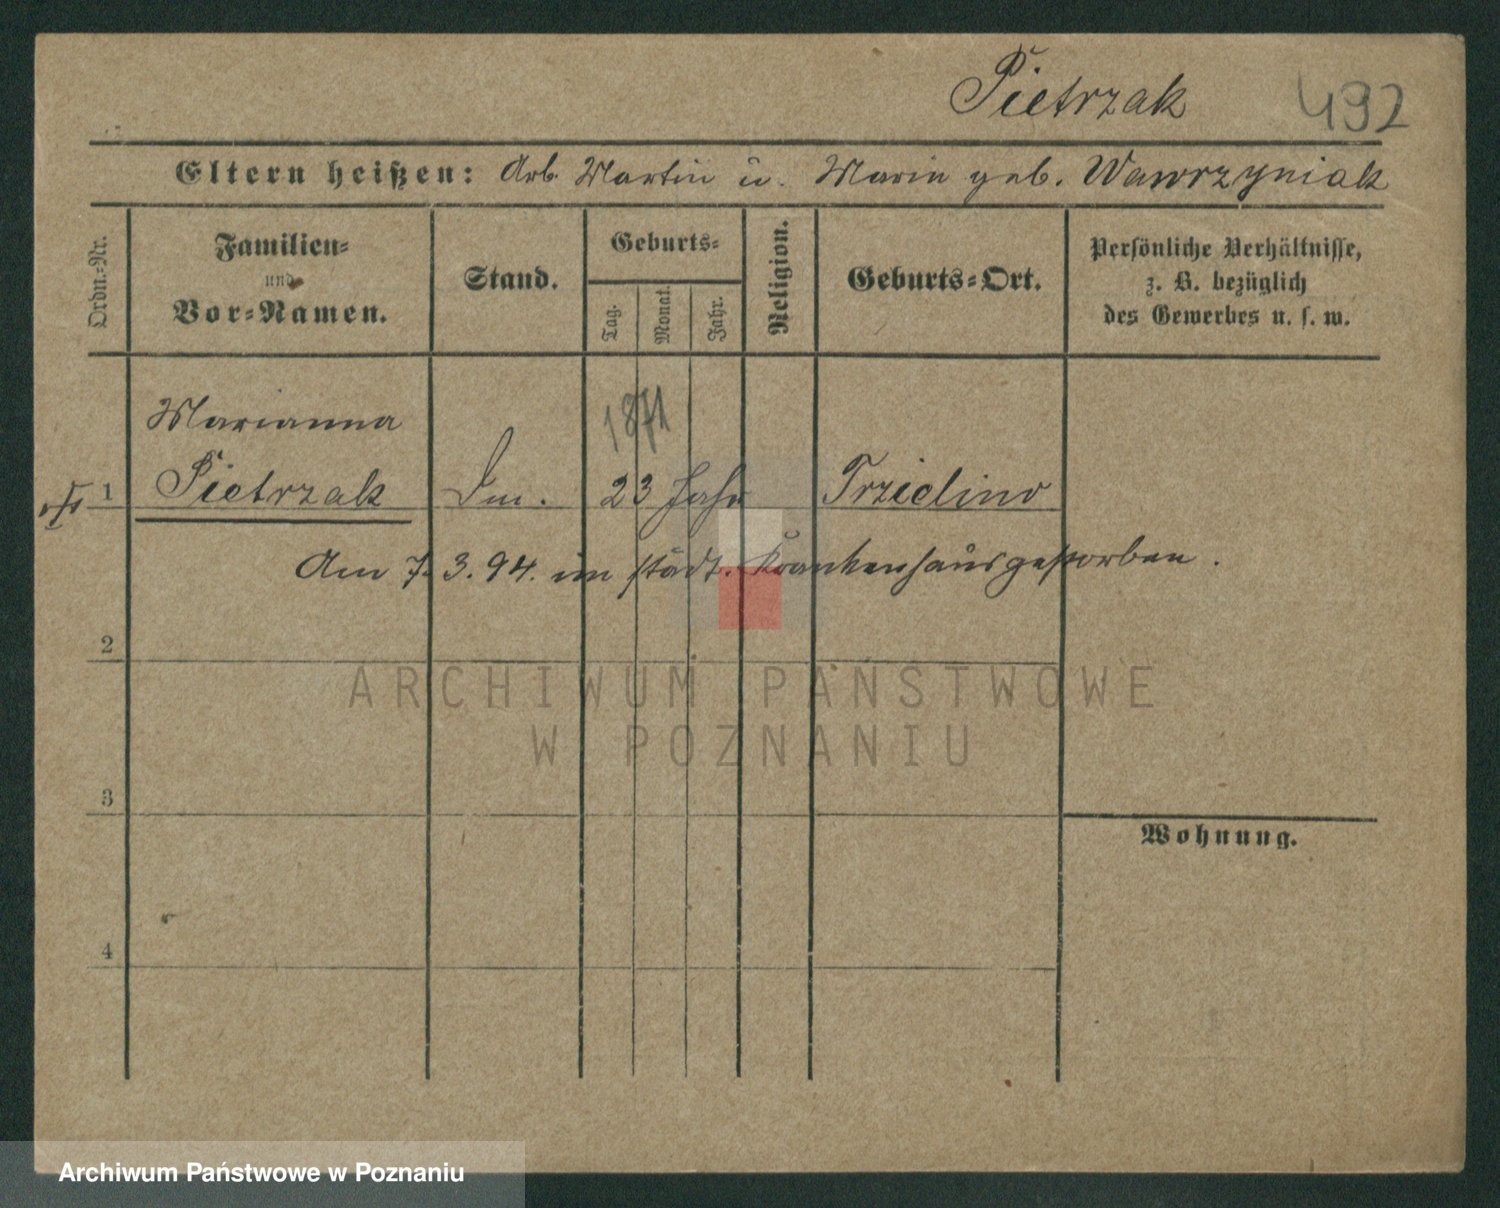 Pietrzak 492
Eltern heißen: Arb. Martin u. Marie geb. Wawrzyniak
Ordn.-Nr.
Familien-
und
Vor-Namen.
Stand.
Geburts-
Tag.
Monat.
Jahr.
Religion.
Geburts-Ort.
Persönliche Verhältnisse,
z. B. bezüglich
des Gewerbes u. s. w.
Marianna
1871
1 Pietrzak 23 Jahr Trzielino
Am 7. 3. 94. im städt. Krankenhaus gestorben.
2
ARCHIWUM PAŃSTWOWE
W POZNANIU
3
Wohnung.
4
Archiwum Państwowe w Poznaniu